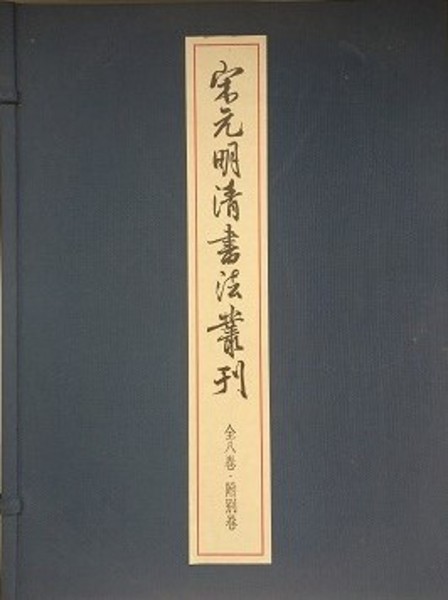 宋元明清書法叢刊
全八巻・附別巻